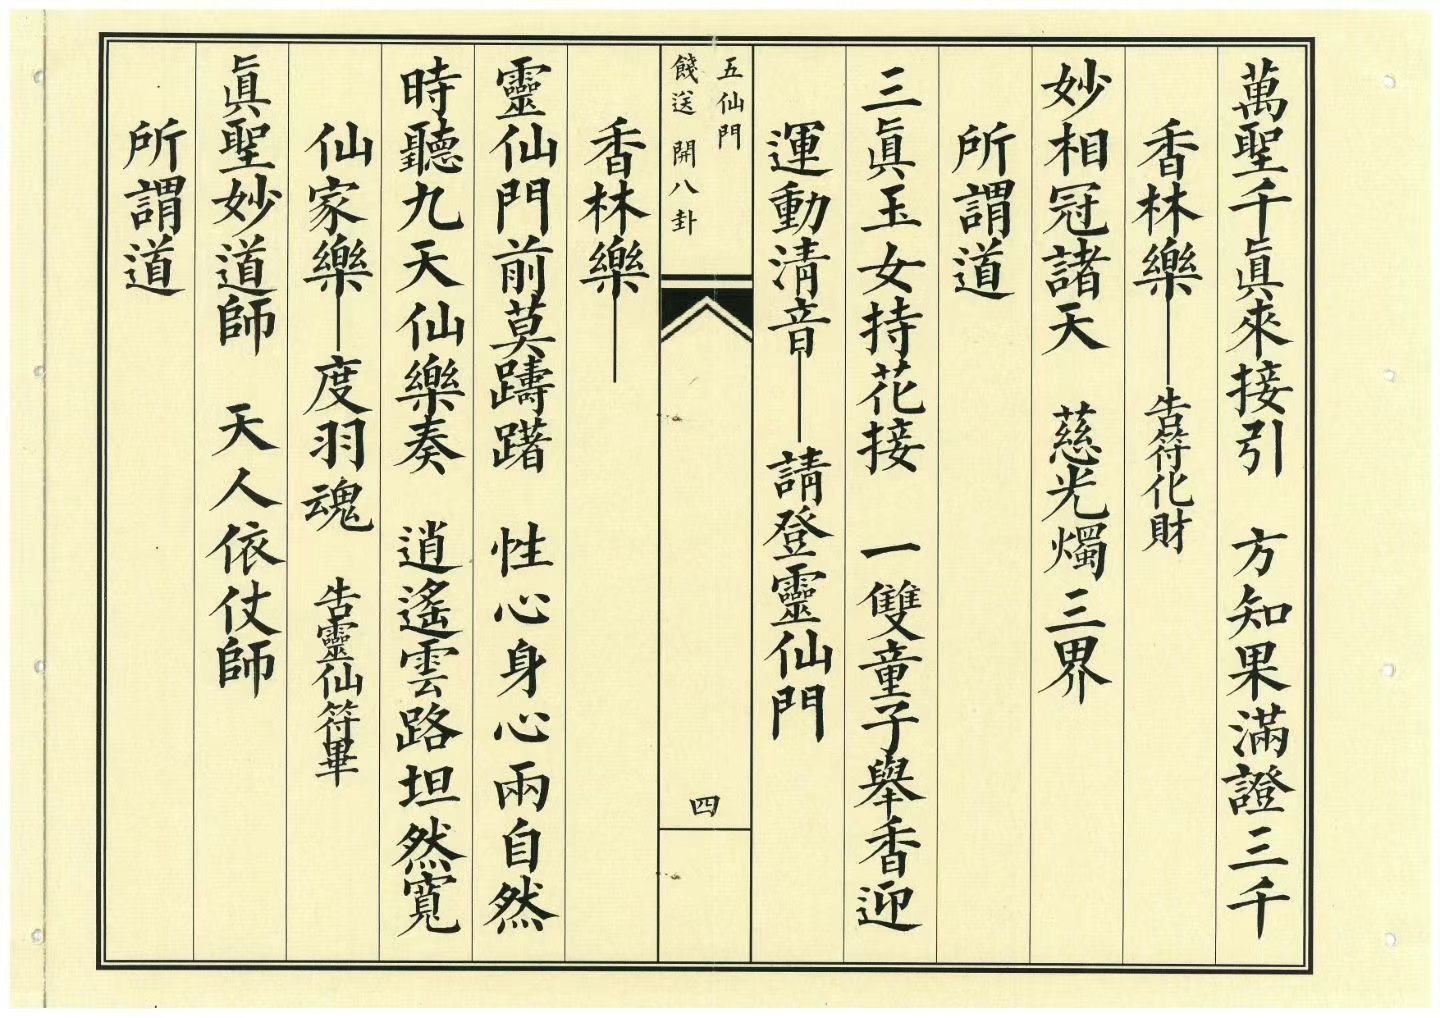 萬聖千眞來接引　方知果滿證三千
香林樂——告符化財
妙相冠諸天　慈光燭三界
所謂道
三眞玉女持花接　一雙童子舉香迎
運動清音——請登靈仙門
五仙門
餞送　開八卦
四
香林樂——
靈仙門前莫躊躇　性心身心兩自然
時聽九天仙樂奏　逍遙雲路坦然寬
仙家樂——度羽魂　告靈仙符畢
眞聖妙道師　天人依仗師
所謂道